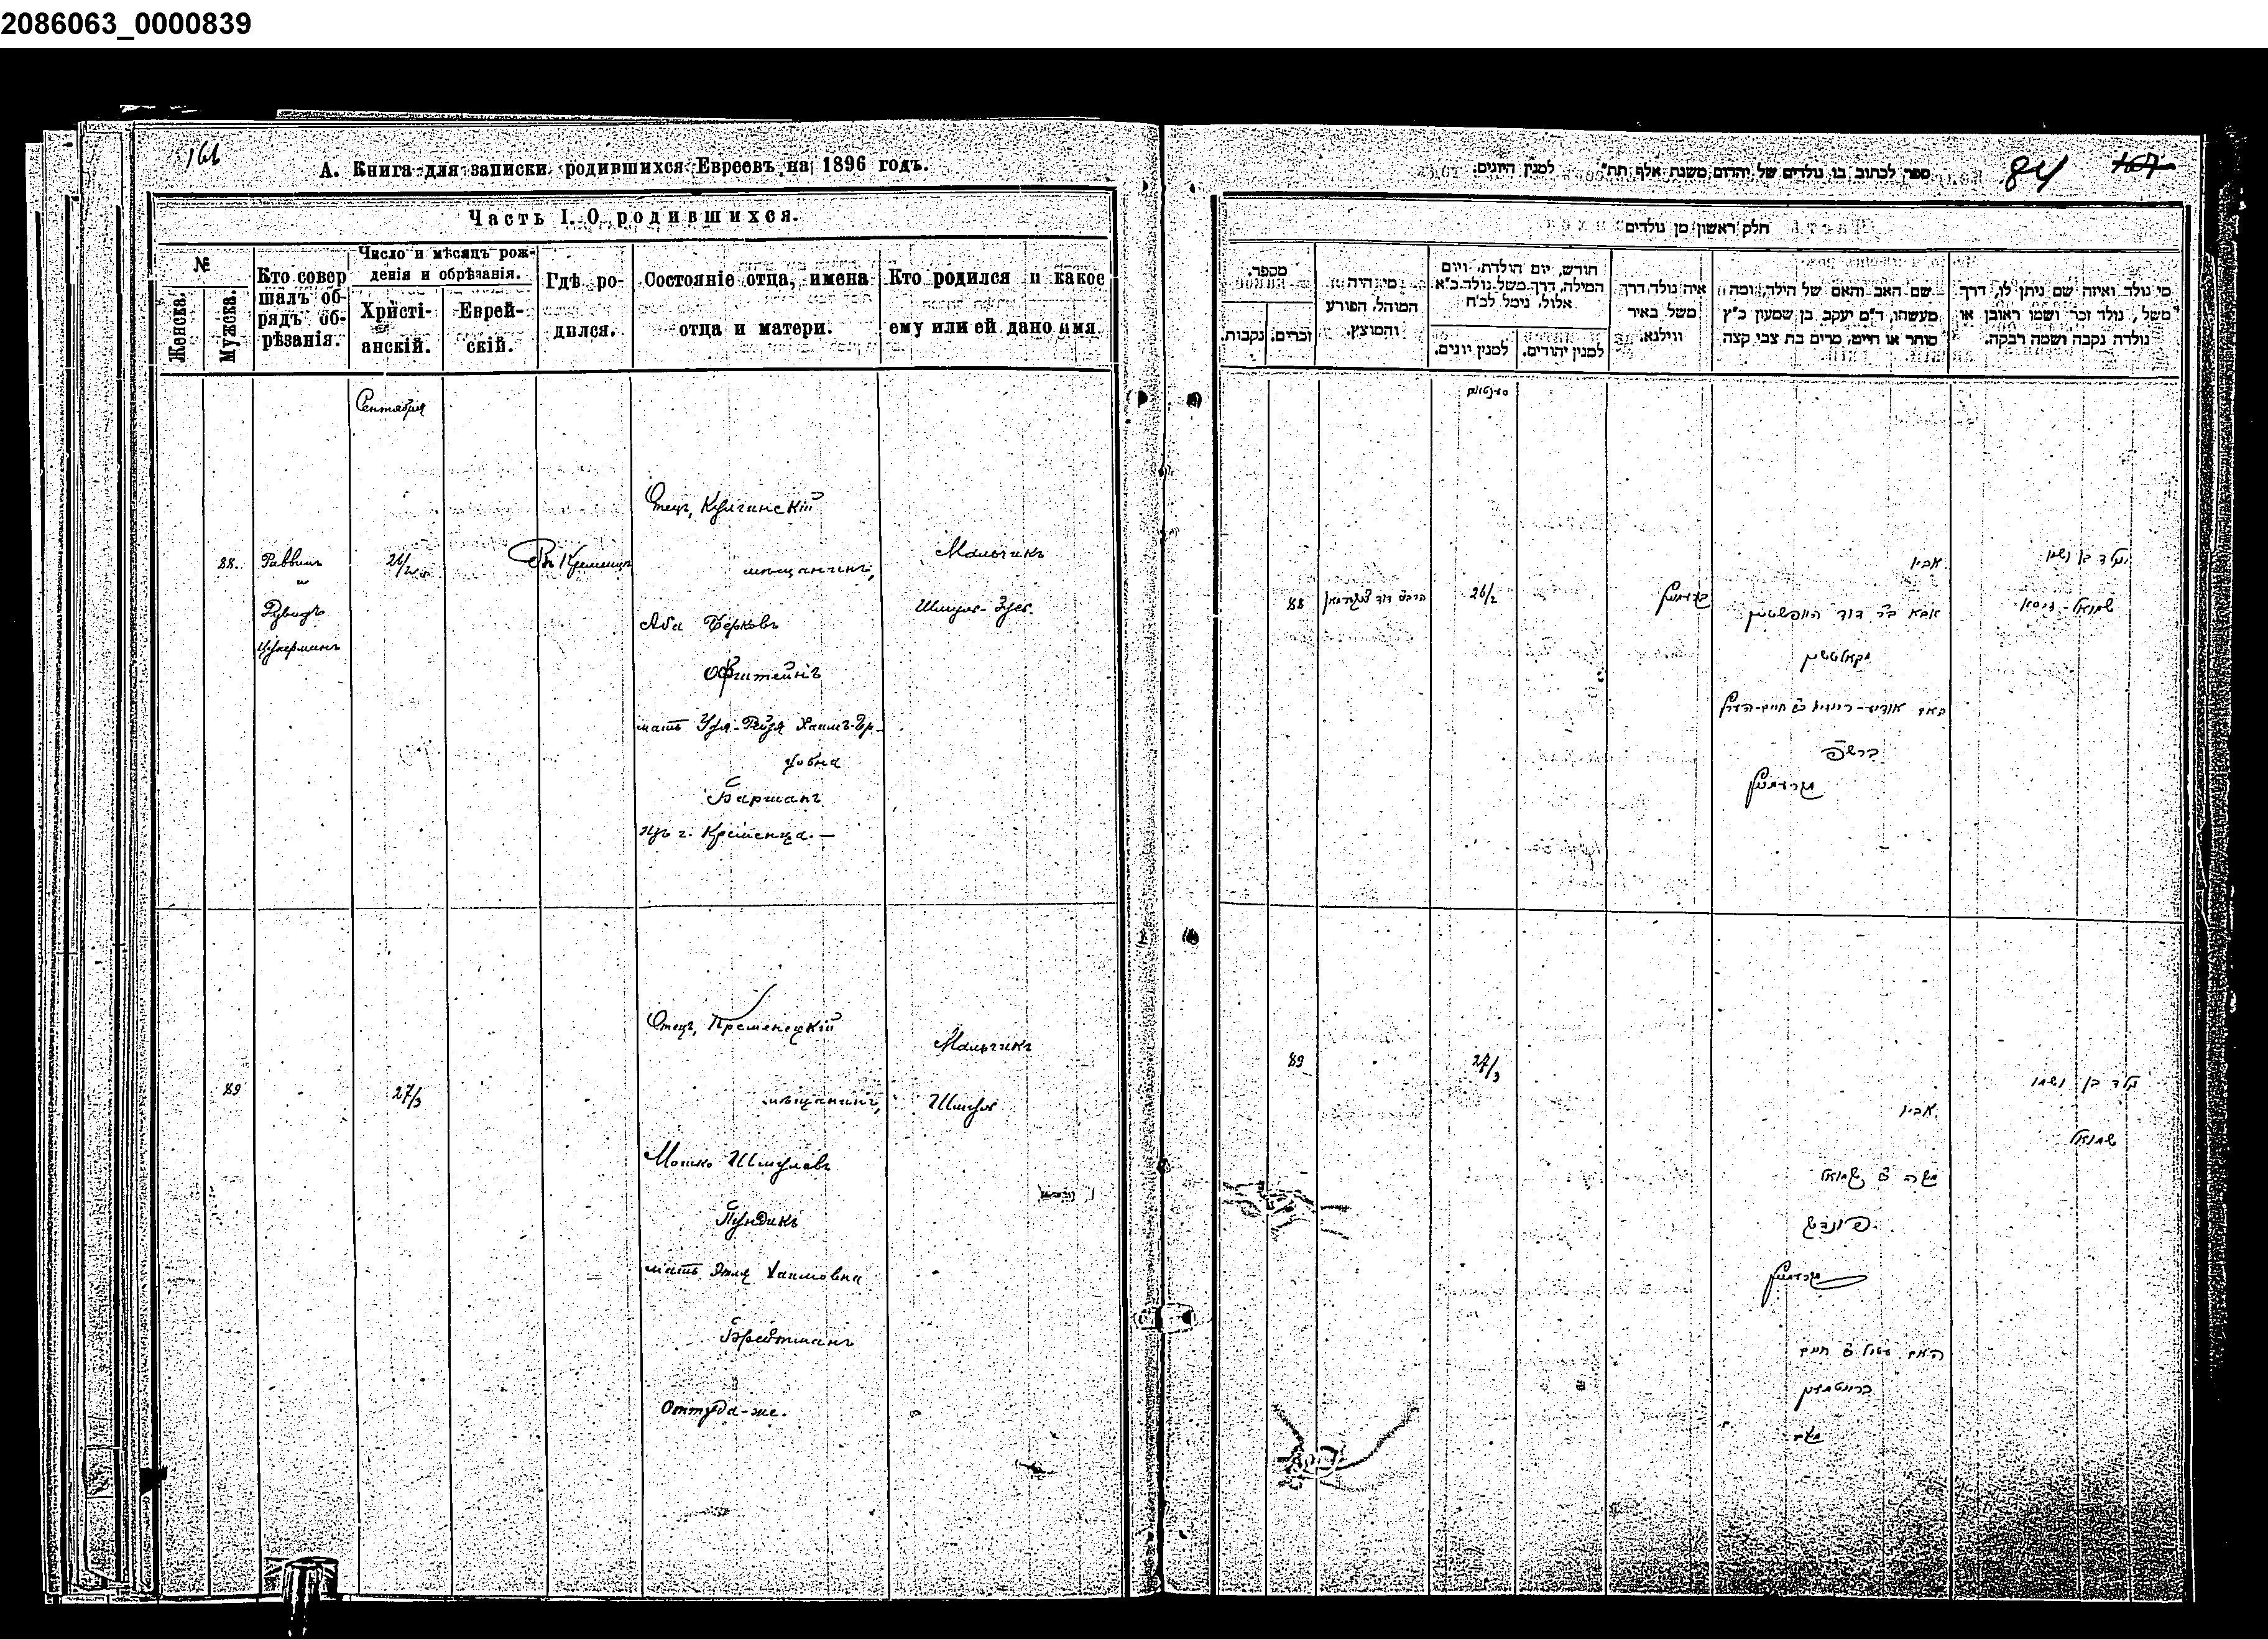 2086063_0000839
166
А. Книга для записки родившихся Евреевъ на 1896 годъ.
Часть I. О родившихся.
№
Женска.
Мужска.
Кто совер
шалъ об-
рядъ об-
рѣзанія.
Число и мѣсяцъ рож-
денія и обрѣзанія.
Христі-
анскій.
Еврей-
скій.
Гдѣ ро-
дился.
Состояніе отца, имена
отца и матери.
Кто родился и какое
ему или ей дано имя
Сентября
88.
Раввинъ
и
Дувидъ
Цукерманъ
26/2
Въ Кременцѣ
Отецъ, Купчинскій
мѣщанинъ,
Аба Берковъ
Офштейнъ
мать Удя-Рейзя Хаимъ-Гер-
цовна
Баршапъ
изъ г. Кременца.—
Мальчикъ
Шмуль-Зусь
89
27/3
Отецъ, Кременецкій
мѣщанинъ,
Мошко Шмулевъ
Пундикъ
мать Этля Хаимовна
Бройтманъ
Оттуда-же.
Мальчикъ
Шмуль
ספר לכתוב בו נולדים של יהודים משנת אלף תת״ למנין היונים.
84
167
חלק ראשון מן נולדים
מספר.
נקבות.
זכרים.
מי היה
המוהל, הפורע
והמוצץ.
חודש, יום הולדת, ויום
המילה, דרך משל נולד כ״א
אלול, נימל לכ״ח
למנין יונים.
למנין יהודים.
איה נולד דרך
משל באיר
ווילנא.
שם האב והאם של הילד, ומה
מעשהו, ד״מ יעקב בן שמעון כ״ץ
סוחר או חייט, מרים בת צבי קצה
מי נולד ואיזה שם ניתן לו, דרך
משל, נולד זכר ושמו ראובן או
נולדה נקבה ושמה רבקה.
88
26/2
אביו
נולד בן ושמו
שמואל-זיסא
האם
89
27/3
אביו
משה ב״ר שמואל
האם
חיים
משם
נולד בן ושמו
שמואל